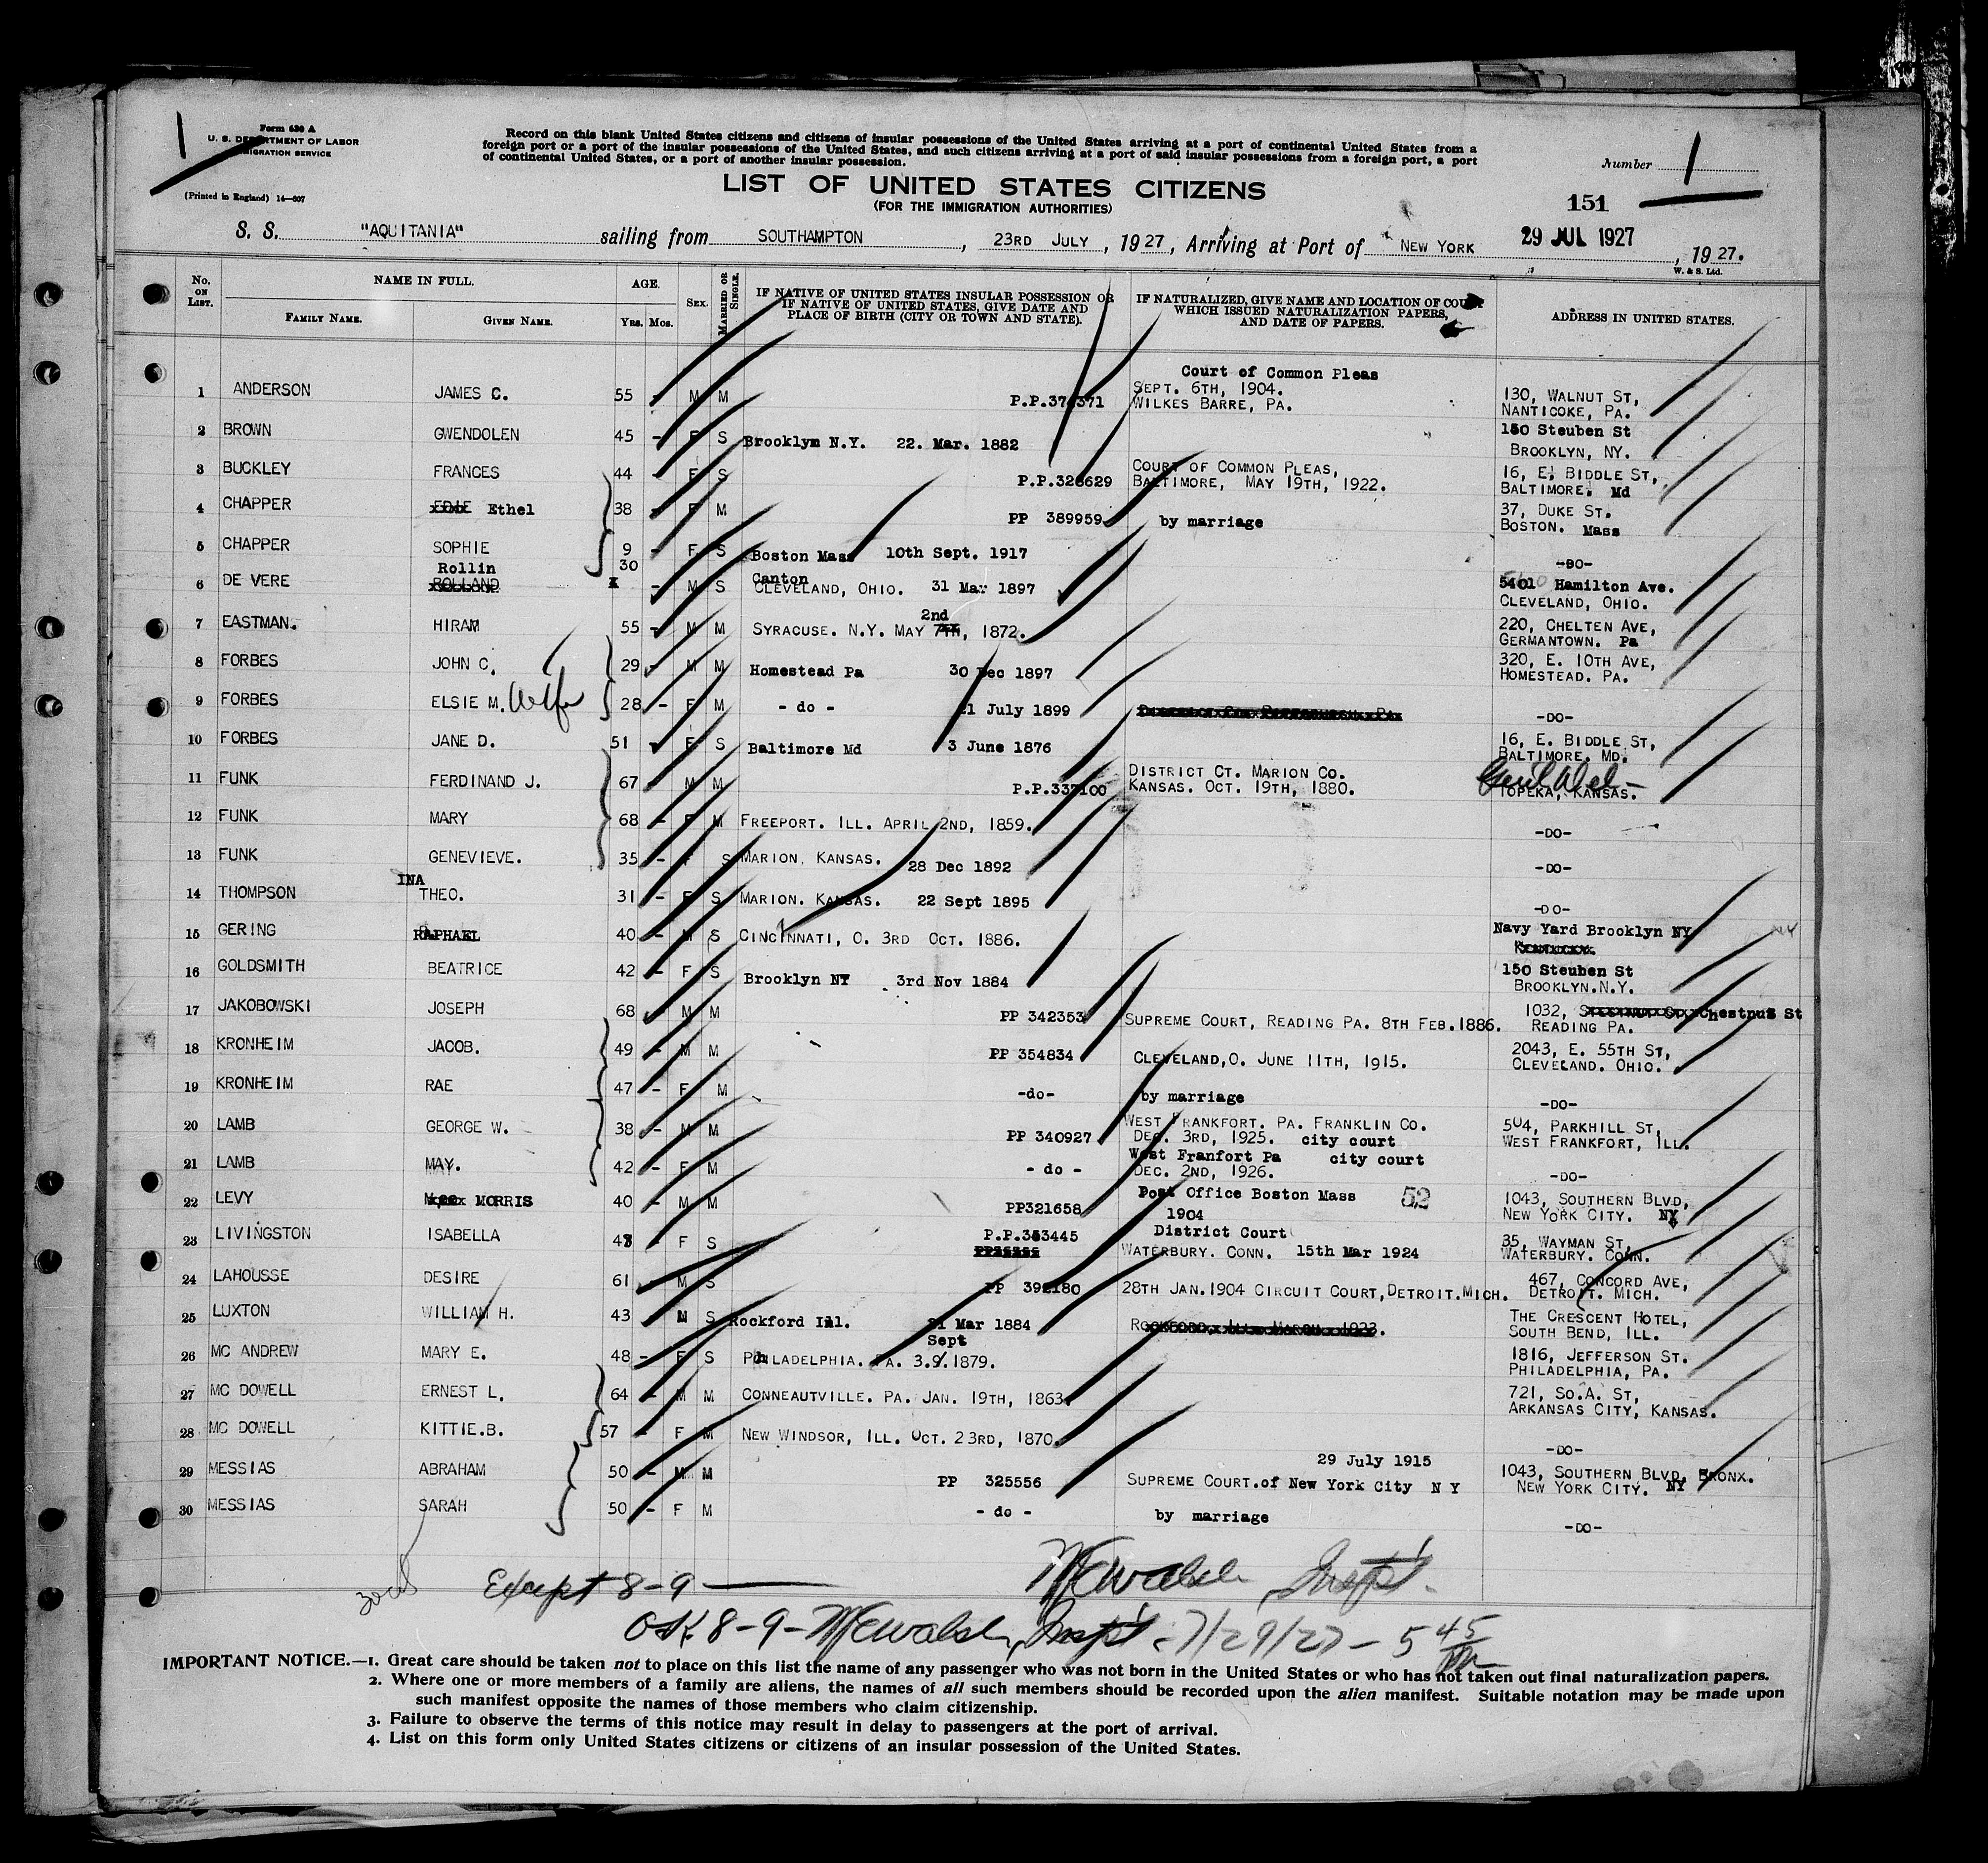 1
Form 630 A
U. S. DEPARTMENT OF LABOR
IMMIGRATION SERVICE
(Printed in England) 14—607
Record on this blank United States citizens and citizens of insular possessions of the United States arriving at a port of continental United States from a
foreign port or a port of the insular possessions of the United States, and such citizens arriving at a port of said insular possessions from a foreign port, a port
of continental United States, or a port of another insular possession.
Number 1
LIST OF UNITED STATES CITIZENS
(FOR THE IMMIGRATION AUTHORITIES)
151
S. S. "AQUITANIA" sailing from SOUTHAMPTON, 23RD JULY, 1927, Arriving at Port of NEW YORK 29 JUL 1927, 1927.
W. & S. Ltd.
No. ON LIST. NAME IN FULL. AGE. SEX. MARRIED OR SINGLE. IF NATIVE OF UNITED STATES INSULAR POSSESSION OR IF NATIVE OF UNITED STATES, GIVE DATE AND PLACE OF BIRTH (CITY OR TOWN AND STATE). IF NATURALIZED, GIVE NAME AND LOCATION OF COURT WHICH ISSUED NATURALIZATION PAPERS, AND DATE OF PAPERS. ADDRESS IN UNITED STATES.
FAMILY NAME. GIVEN NAME. YRS. MOS.
Court of Common Pleas
1 ANDERSON JAMES C. 55 - M M P.P.374371 SEPT. 6TH, 1904. WILKES BARRE, PA. 130, WALNUT ST, NANTICOKE, PA.
2 BROWN GWENDOLEN 45 - F S Brooklyn N.Y. 22. Mar. 1882 150 Steuben St BROOKLYN, NY.
3 BUCKLEY FRANCES 44 - F S P.P.328629 COURT OF COMMON PLEAS, BALTIMORE, MAY 19TH, 1922. 16, E. BIDDLE ST, BALTIMORE. Md
4 CHAPPER EDIE Ethel 38 - F M PP 389959 by marriage 37, DUKE ST. BOSTON. Mass
5 CHAPPER SOPHIE 9 - F S Boston Mass 10th Sept. 1917 -DO-
6 DE VERE Rollin ROLLAND 30 - M S Canton CLEVELAND, OHIO. 31 Mar 1897 5401 Hamilton Ave. CLEVELAND, OHIO.
7 EASTMAN. HIRAM 55 - M M SYRACUSE. N.Y. MAY 2nd 7TH, 1872. 220, CHELTEN AVE, GERMANTOWN. Pa
8 FORBES JOHN C. 29 - M M Homestead Pa 30 Dec 1897 320, E. 10TH AVE, HOMESTEAD. PA.
9 FORBES ELSIE M. Wife 28 - F M - do - 21 July 1899 -DO-
10 FORBES JANE D. 51 - F S Baltimore Md 3 June 1876 16, E. BIDDLE ST, BALTIMORE. MD.
11 FUNK FERDINAND J. 67 M M P.P.337100 DISTRICT CT. MARION CO. KANSAS. OCT. 19TH, 1880. TOPEKA, KANSAS.
12 FUNK MARY 68 - F M FREEPORT. ILL. APRIL 2ND, 1859. -DO-
13 FUNK GENEVIEVE. 35 - F S MARION, KANSAS. 28 Dec 1892 -DO-
14 THOMPSON THEO. INA 31 - F S MARION. KANSAS. 22 Sept 1895 -DO-
15 GERING RAPHAEL 40 - M S CINCINNATI, O. 3RD OCT. 1886. Navy Yard Brooklyn NY KENTUCKY.
16 GOLDSMITH BEATRICE 42 - F S Brooklyn NY 3rd Nov 1884 150 Steuben St BROOKLYN.N.Y.
17 JAKOBOWSKI JOSEPH 68 - M M PP 342353 SUPREME COURT, READING PA. 8TH FEB.1886. 1032, Chestnut St READING PA.
18 KRONHEIM JACOB. 49 - M M PP 354834 CLEVELAND,O. JUNE 11TH, 1915. 2043, E. 55TH ST, CLEVELAND. OHIO.
19 KRONHEIM RAE 47 - F M -do- by marriage -DO-
20 LAMB GEORGE W. 38 - M M PP 340927 WEST FRANKFORT. PA. FRANKLIN CO. DEC. 3RD, 1925. city court 504, PARKHILL ST, WEST FRANKFORT, ILL.
21 LAMB MAY. 42 - F M - do - West Franfort Pa city court DEC. 2ND, 1926. -DO-
22 LEVY MORRIS 40 - M M PP321658 Post Office Boston Mass 1904 52 1043, SOUTHERN BLVD, NEW YORK CITY. NY
23 LIVINGSTON ISABELLA F S P.P.353445 District Court WATERBURY. CONN. 15th Mar 1924 35, WAYMAN ST, WATERBURY. CONN.
24 LAHOUSSE DESIRE 61 - M S PP 392180 28TH JAN.1904 CIRCUIT COURT,DETROIT.MICH. 467, CONCORD AVE, DETROIT. MICH.
25 LUXTON WILLIAM H. 43 M S Rockford Ill. 21 Mar 1884 ROCKFORD, ILL. MARCH 1923. THE CRESCENT HOTEL, SOUTH BEND, ILL.
26 MC ANDREW MARY E. 48 - F S PHILADELPHIA. PA. 3. Sept 9. 1879. 1816, JEFFERSON ST. PHILADELPHIA, PA.
27 MC DOWELL ERNEST L. 64 - M M CONNEAUTVILLE. PA. JAN. 19TH, 1863 721, SO.A. ST, ARKANSAS CITY, KANSAS.
28 MC DOWELL KITTIE.B. 57 F M NEW WINDSOR, ILL. OCT. 23RD, 1870. -DO-
29 MESSIAS ABRAHAM 50 - M M PP 325556 29 July 1915 SUPREME COURT.of New York City N Y 1043, SOUTHERN BLVD, BRONX. NEW YORK CITY. NY
30 MESSIAS SARAH 50 - F M - do - by marriage -DO-
Except 8-9 —
Insp't.
O.K. 8-9- Insp't. 7/29/27 - 5 45
IMPORTANT NOTICE.—1. Great care should be taken not to place on this list the name of any passenger who was not born in the United States or who has not taken out final naturalization papers.
2. Where one or more members of a family are aliens, the names of all such members should be recorded upon the alien manifest. Suitable notation may be made upon
such manifest opposite the names of those members who claim citizenship.
3. Failure to observe the terms of this notice may result in delay to passengers at the port of arrival.
4. List on this form only United States citizens or citizens of an insular possession of the United States.